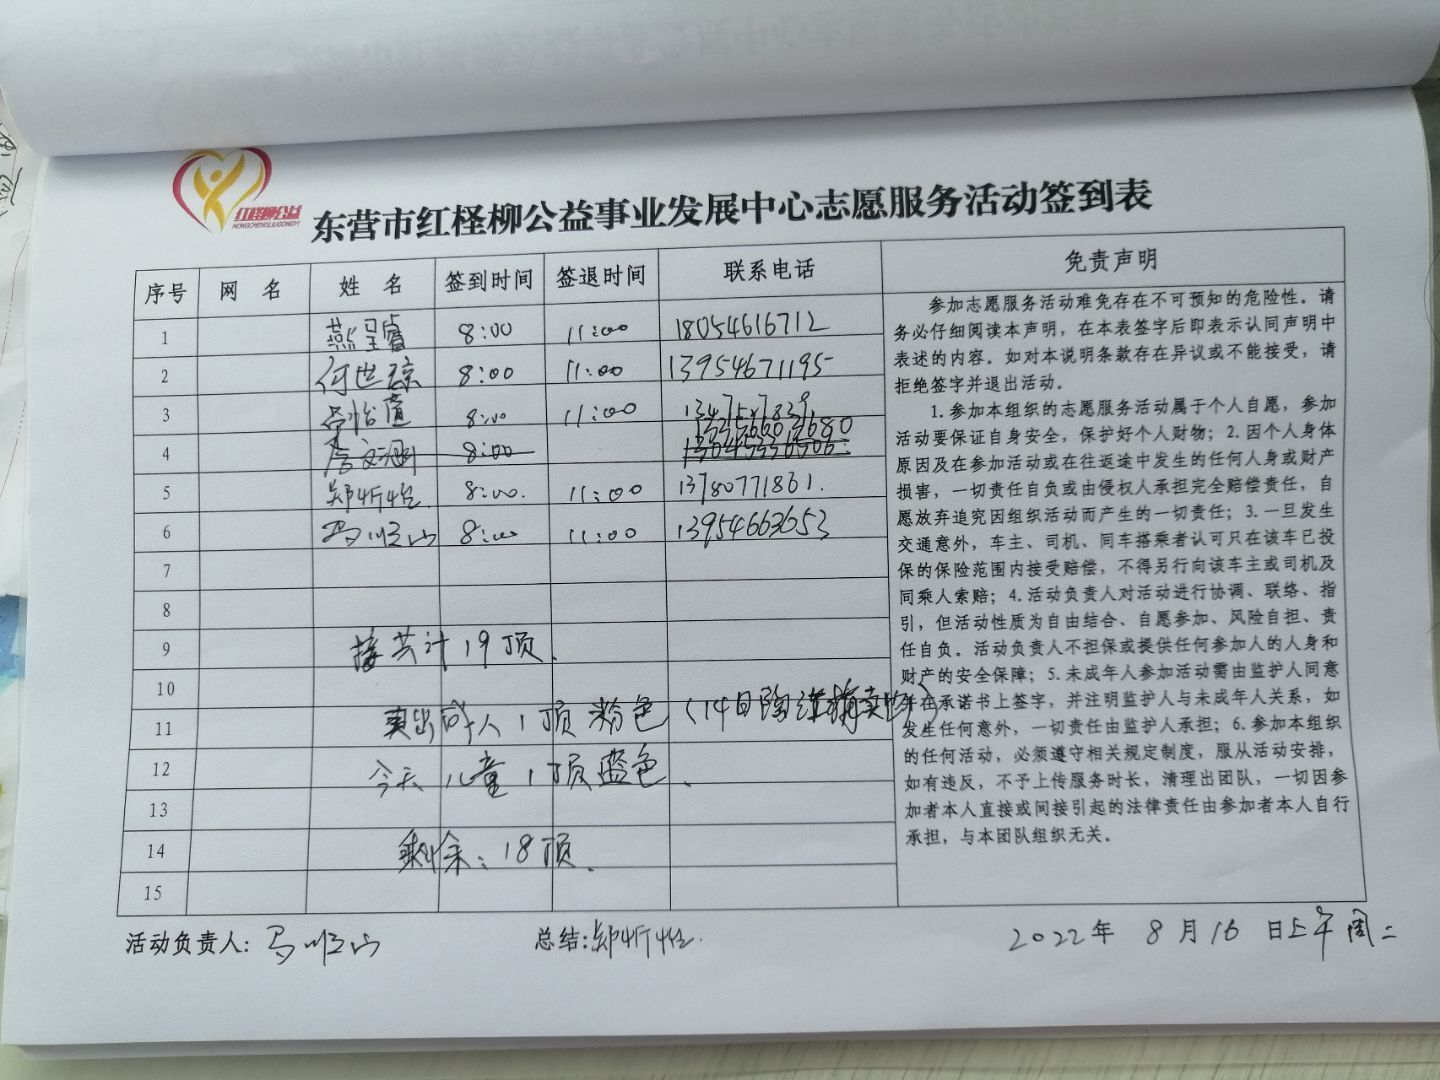 红柽柳公益
HONGCHENGLIUGONGYI
东营市红柽柳公益事业发展中心志愿服务活动签到表
序号 网 名 姓 名 签到时间 签退时间 联系电话 免责声明
1 燕呈睿 8:00 11:00 18054616712
2 何世琼 8:00 11:00 13954671195
3 8:00 11:00
4 8:00
5 8:00. 11:00 13780771861.
6 马顺山 8:00 11:00 13954663653
7
8
9 接共计19顶.
10
11 卖出成人1顶粉色(14日
12 今天儿童1顶蓝色.
13
14 剩余:18顶.
15
参加志愿服务活动难免存在不可预知的危险性。请
务必仔细阅读本声明，在本表签字后即表示认同声明中
表述的内容。如对本说明条款存在异议或不能接受，请
拒绝签字并退出活动。
1.参加本组织的志愿服务活动属于个人自愿，参加
活动要保证自身安全，保护好个人财物；2.因个人身体
原因及在参加活动或在往返途中发生的任何人身或财产
损害，一切责任自负或由侵权人承担完全赔偿责任，自
愿放弃追究因组织活动而产生的一切责任；3.一旦发生
交通意外，车主、司机、同车搭乘者认可只在该车已投
保的保险范围内接受赔偿，不得另行向该车主或司机及
同乘人索赔；4.活动负责人对活动进行协调、联络、指
引，但活动性质为自由结合、自愿参加、风险自担、责
任自负。活动负责人不担保或提供任何参加人的人身和
财产的安全保障；5.未成年人参加活动需由监护人同意
并在承诺书上签字，并注明监护人与未成年人关系，如
发生任何意外，一切责任由监护人承担；6.参加本组织
的任何活动，必须遵守相关规定制度，服从活动安排，
如有违反，不予上传服务时长，清理出团队，一切因参
加者本人直接或间接引起的法律责任由参加者本人自行
承担，与本团队组织无关。
活动负责人: 马顺山 总结: 2022年 8月16日上午周二